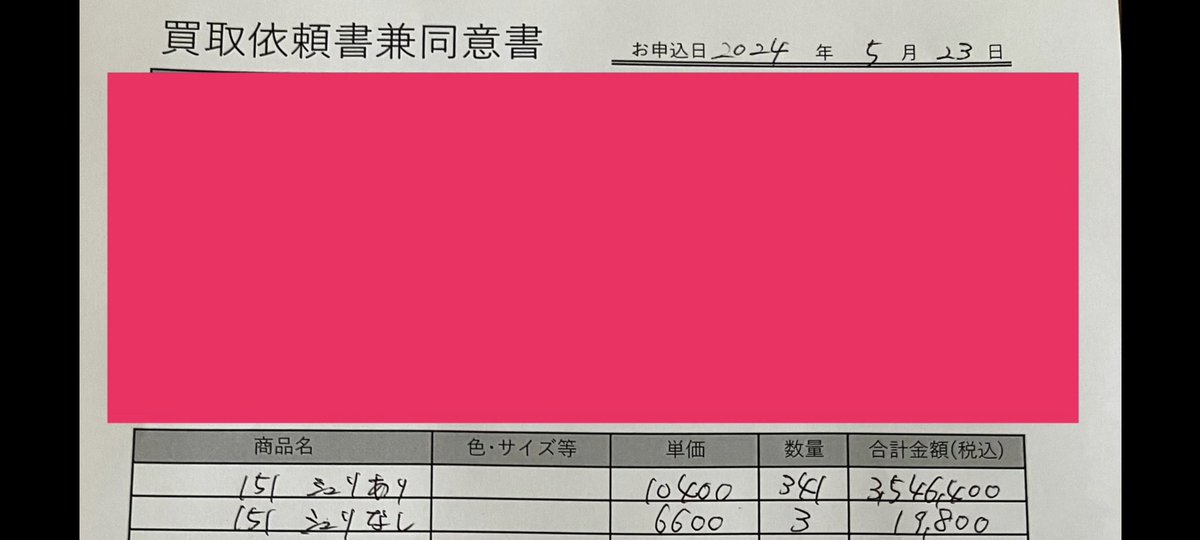 買取依頼書兼同意書
お申込日 2024 年 5 月 23 日
商品名 色・サイズ等 単価 数量 合計金額(税込)
151 シュリあり 10400 341 3,546,400
151 シュリなし 6600 3 19,800